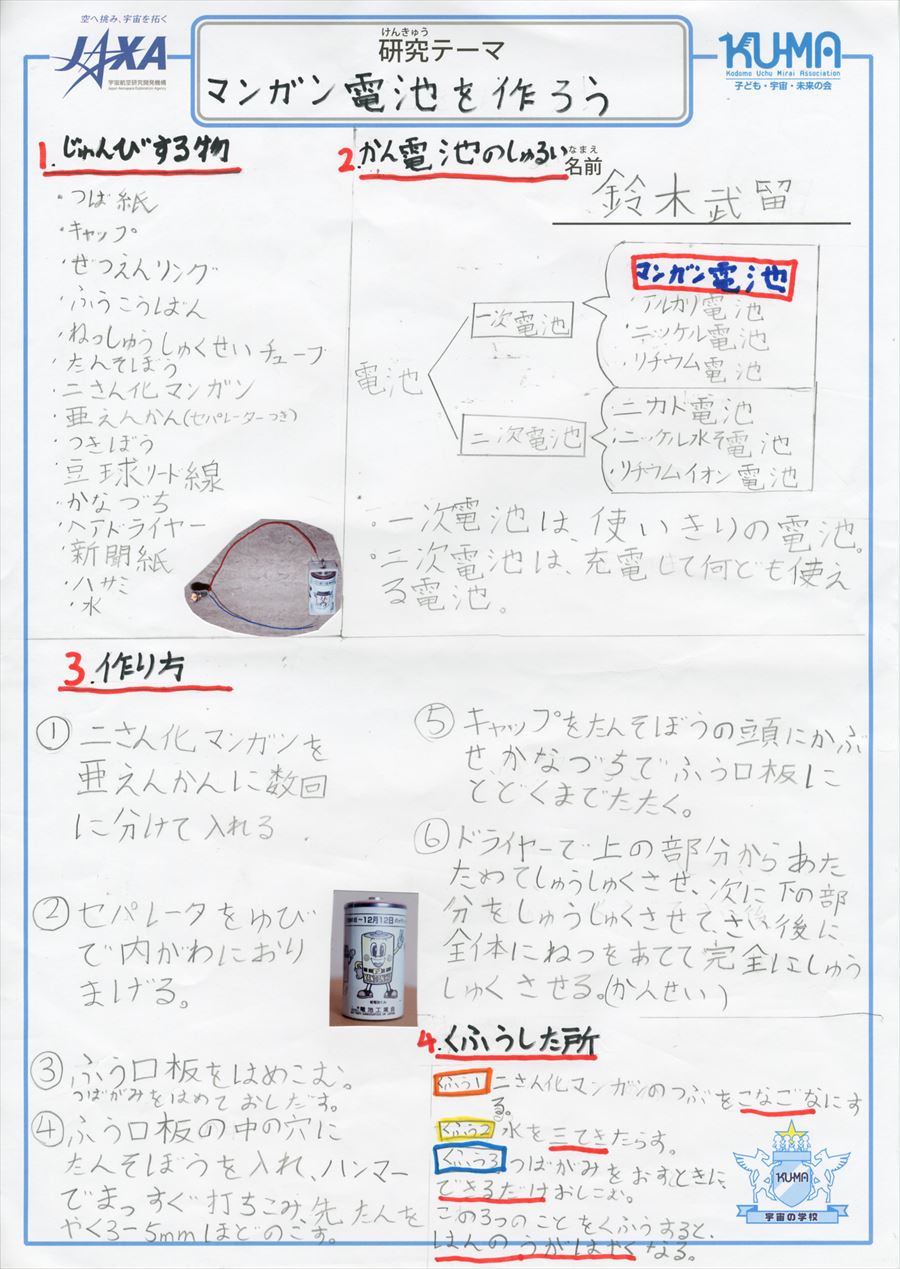 空へ挑み、宇宙を拓く
JAXA
宇宙航空研究開発機構
Japan Aerospace Exploration Agency
けんきゅう
研究テーマ
マンガン電池を作ろう
KU-MA
Kodomo Uchu Mirai Association
子ども・宇宙・未来の会
1.じゅんびする物
・つば紙
・キャップ
・ぜつえんリング
・ふうこうばん
・ねっしゅうしゅくせいチューブ
・たんそぼう
・二さん化マンガン
・亜えんかん(セパレーターつき)
・つきぼう
・豆球リード線
・かなづち
・ヘアドライヤー
・新聞紙
・ハサミ
・水
2.かん電池のしゅるい
なまえ
名前
鈴木武留
電池
一次電池
マンガン電池
・アルカリ電池
・ニッケル電池
・リチウム電池
二次電池
・ニカド電池
・ニッケル水そ電池
・リチウムイオン電池
・一次電池は、使いきりの電池。
・二次電池は、充電して何ども使え
る電池。
3.作り方
①二さん化マンガンを
亜えんかんに数回
に分けて入れる
②セパレータをゆび
で内がわにおり
まげる。
~12月12日
電池工業会
③ふう口板をはめこむ。
つばがみをはめておしだす。
④ふう口板の中の穴に
たんそぼうを入れ、ハンマー
でまっすぐ打ちこみ、先たんを
やく3-5mmほどのこす。
⑤キャップをたんそぼうの頭にかぶ
せ、かなづちでふう口板に
とどくまでたたく。
⑥ドライヤーで上の部分からあた
ためてしゅうしゅくさせ、次に下の部
分をしゅうじゅくさせて、さい後に
全体にねつをあてて完全にしゅう
しゅくさせる。(かんせい)
4.くふうした所
くふう1 二さん化マンガンのつぶをこなごなにす
る。
くふう2 水を三てきたらす。
くふう3 つばがみをおすときに、
できるだけおしこむ。
この3つのことをくふうすると、
はんのうがはやくなる。
KU-MA
宇宙の学校